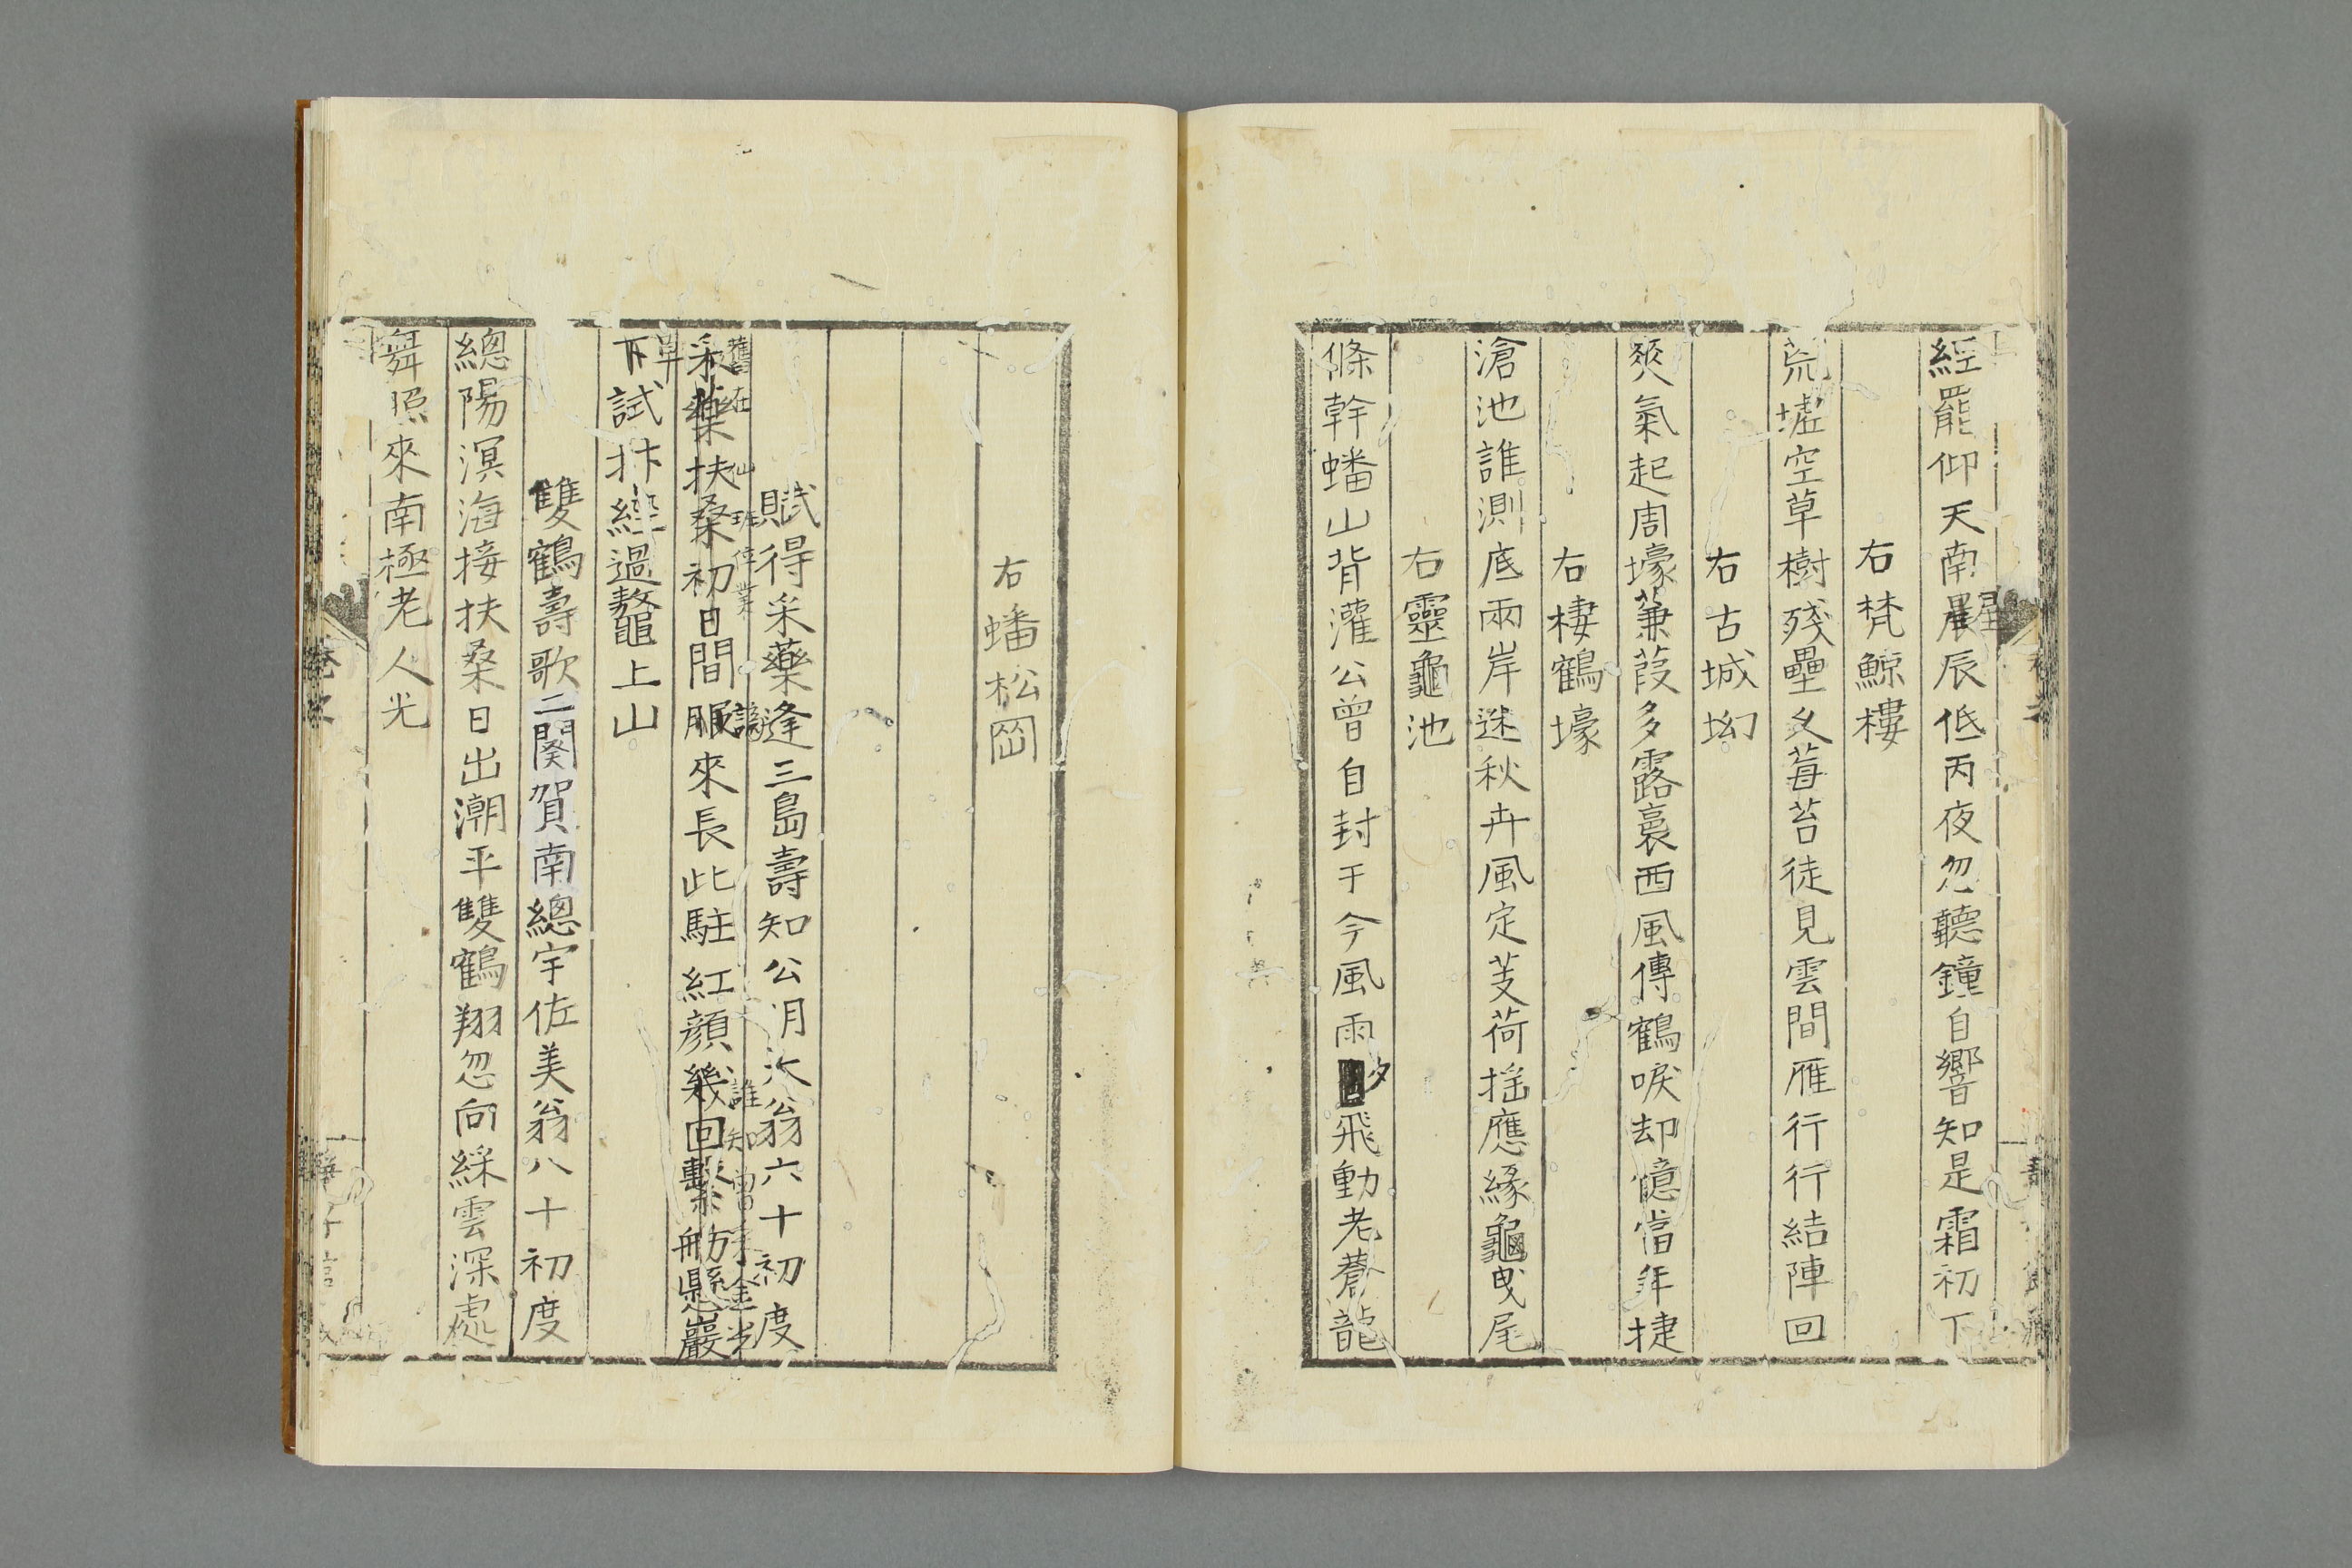 經罷仰天南晨辰低丙夜忽聽鐘自響知是霜初下
星
右梵鯨樓
荒墟空草樹殘壘更莓苔徒見雲間雁行行結陣回
右古城坳
爽氣起周壕蒹葭多露裛西風傳鶴唳却憶當年捷
右棲鶴壕
滄池誰測底兩岸迷秋卉風定芰荷搖應緣龜曳尾
右靈龜池
條幹蟠山背灌公曾自封于今風雨飛動老蒼龍
夕
右蟠松岡
賦得采藥逢三島壽知公月大翁六十初度
舊在仙班停業誰知曾采金光
采藥扶桑初日間服來長此駐紅顏幾回繫舫懸巖
草
下試抃經過鼇上山
雙鶴壽歌二闋賀南總宇佐美翁八十初度
總陽溟海接扶桑日出潮平雙鶴翔忽向綵雲深處
舞照來南極老人光